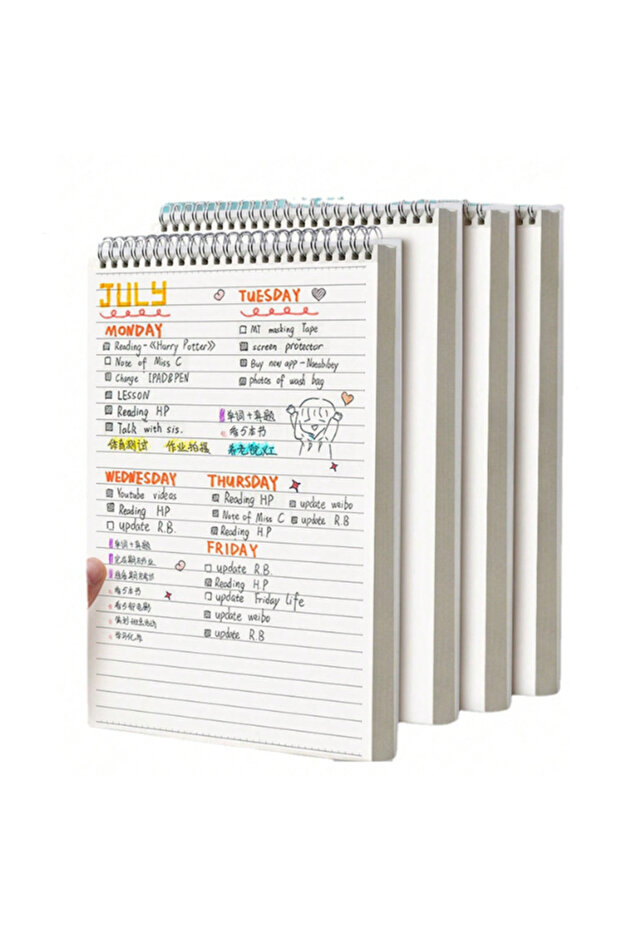 JULY
MONDAY
Reading-《Harry Potter》
Note of Miss C
Change IPAD&PEN
LESSON
Reading HP
Talk with sis.
体育测试 作业拍摄
TUESDAY
MT masking Tape
screen protector
Buy new app-Notability
photos of wash bag
单词+真题
看5本书
养老院义工
WEDNESDAY
Youtube videos
Reading HP
update R.B.
单词+真题
看5本书
THURSDAY
Reading HP
Note of Miss C
Reading HP
update weibo
update R.B
FRIDAY
update R.B.
Reading HP
update Friday life
update weibo
update R.B